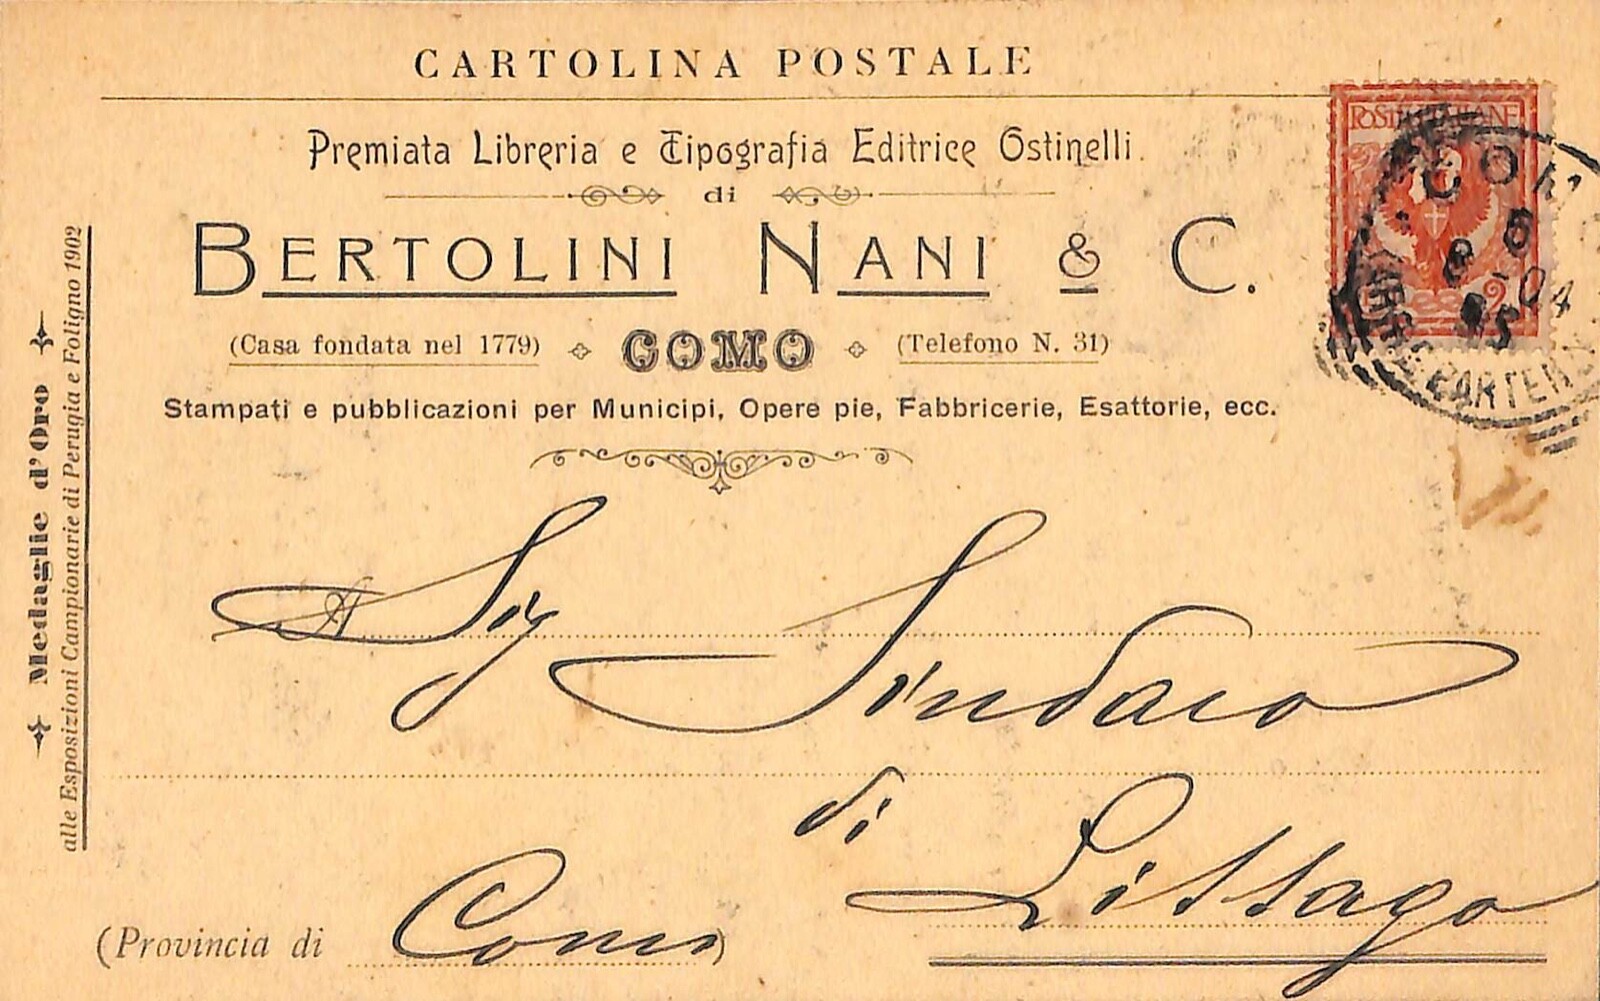 CARTOLINA POSTALE
Premiata Libreria e Tipografia Editrice Ostinelli.
di
BERTOLINI NANI & C.
(Casa fondata nel 1779) COMO (Telefono N. 31)
Stampati e pubblicazioni per Municipi, Opere pie, Fabbricerie, Esattorie, ecc.
Medaglie d'Oro
alle Esposizioni Campionarie di Perugia e Foligno 1902
POSTE ITALIANE
2
COM
8 5
-04
A Sig
Sindaco
di
Lissago
(Provincia di Como)